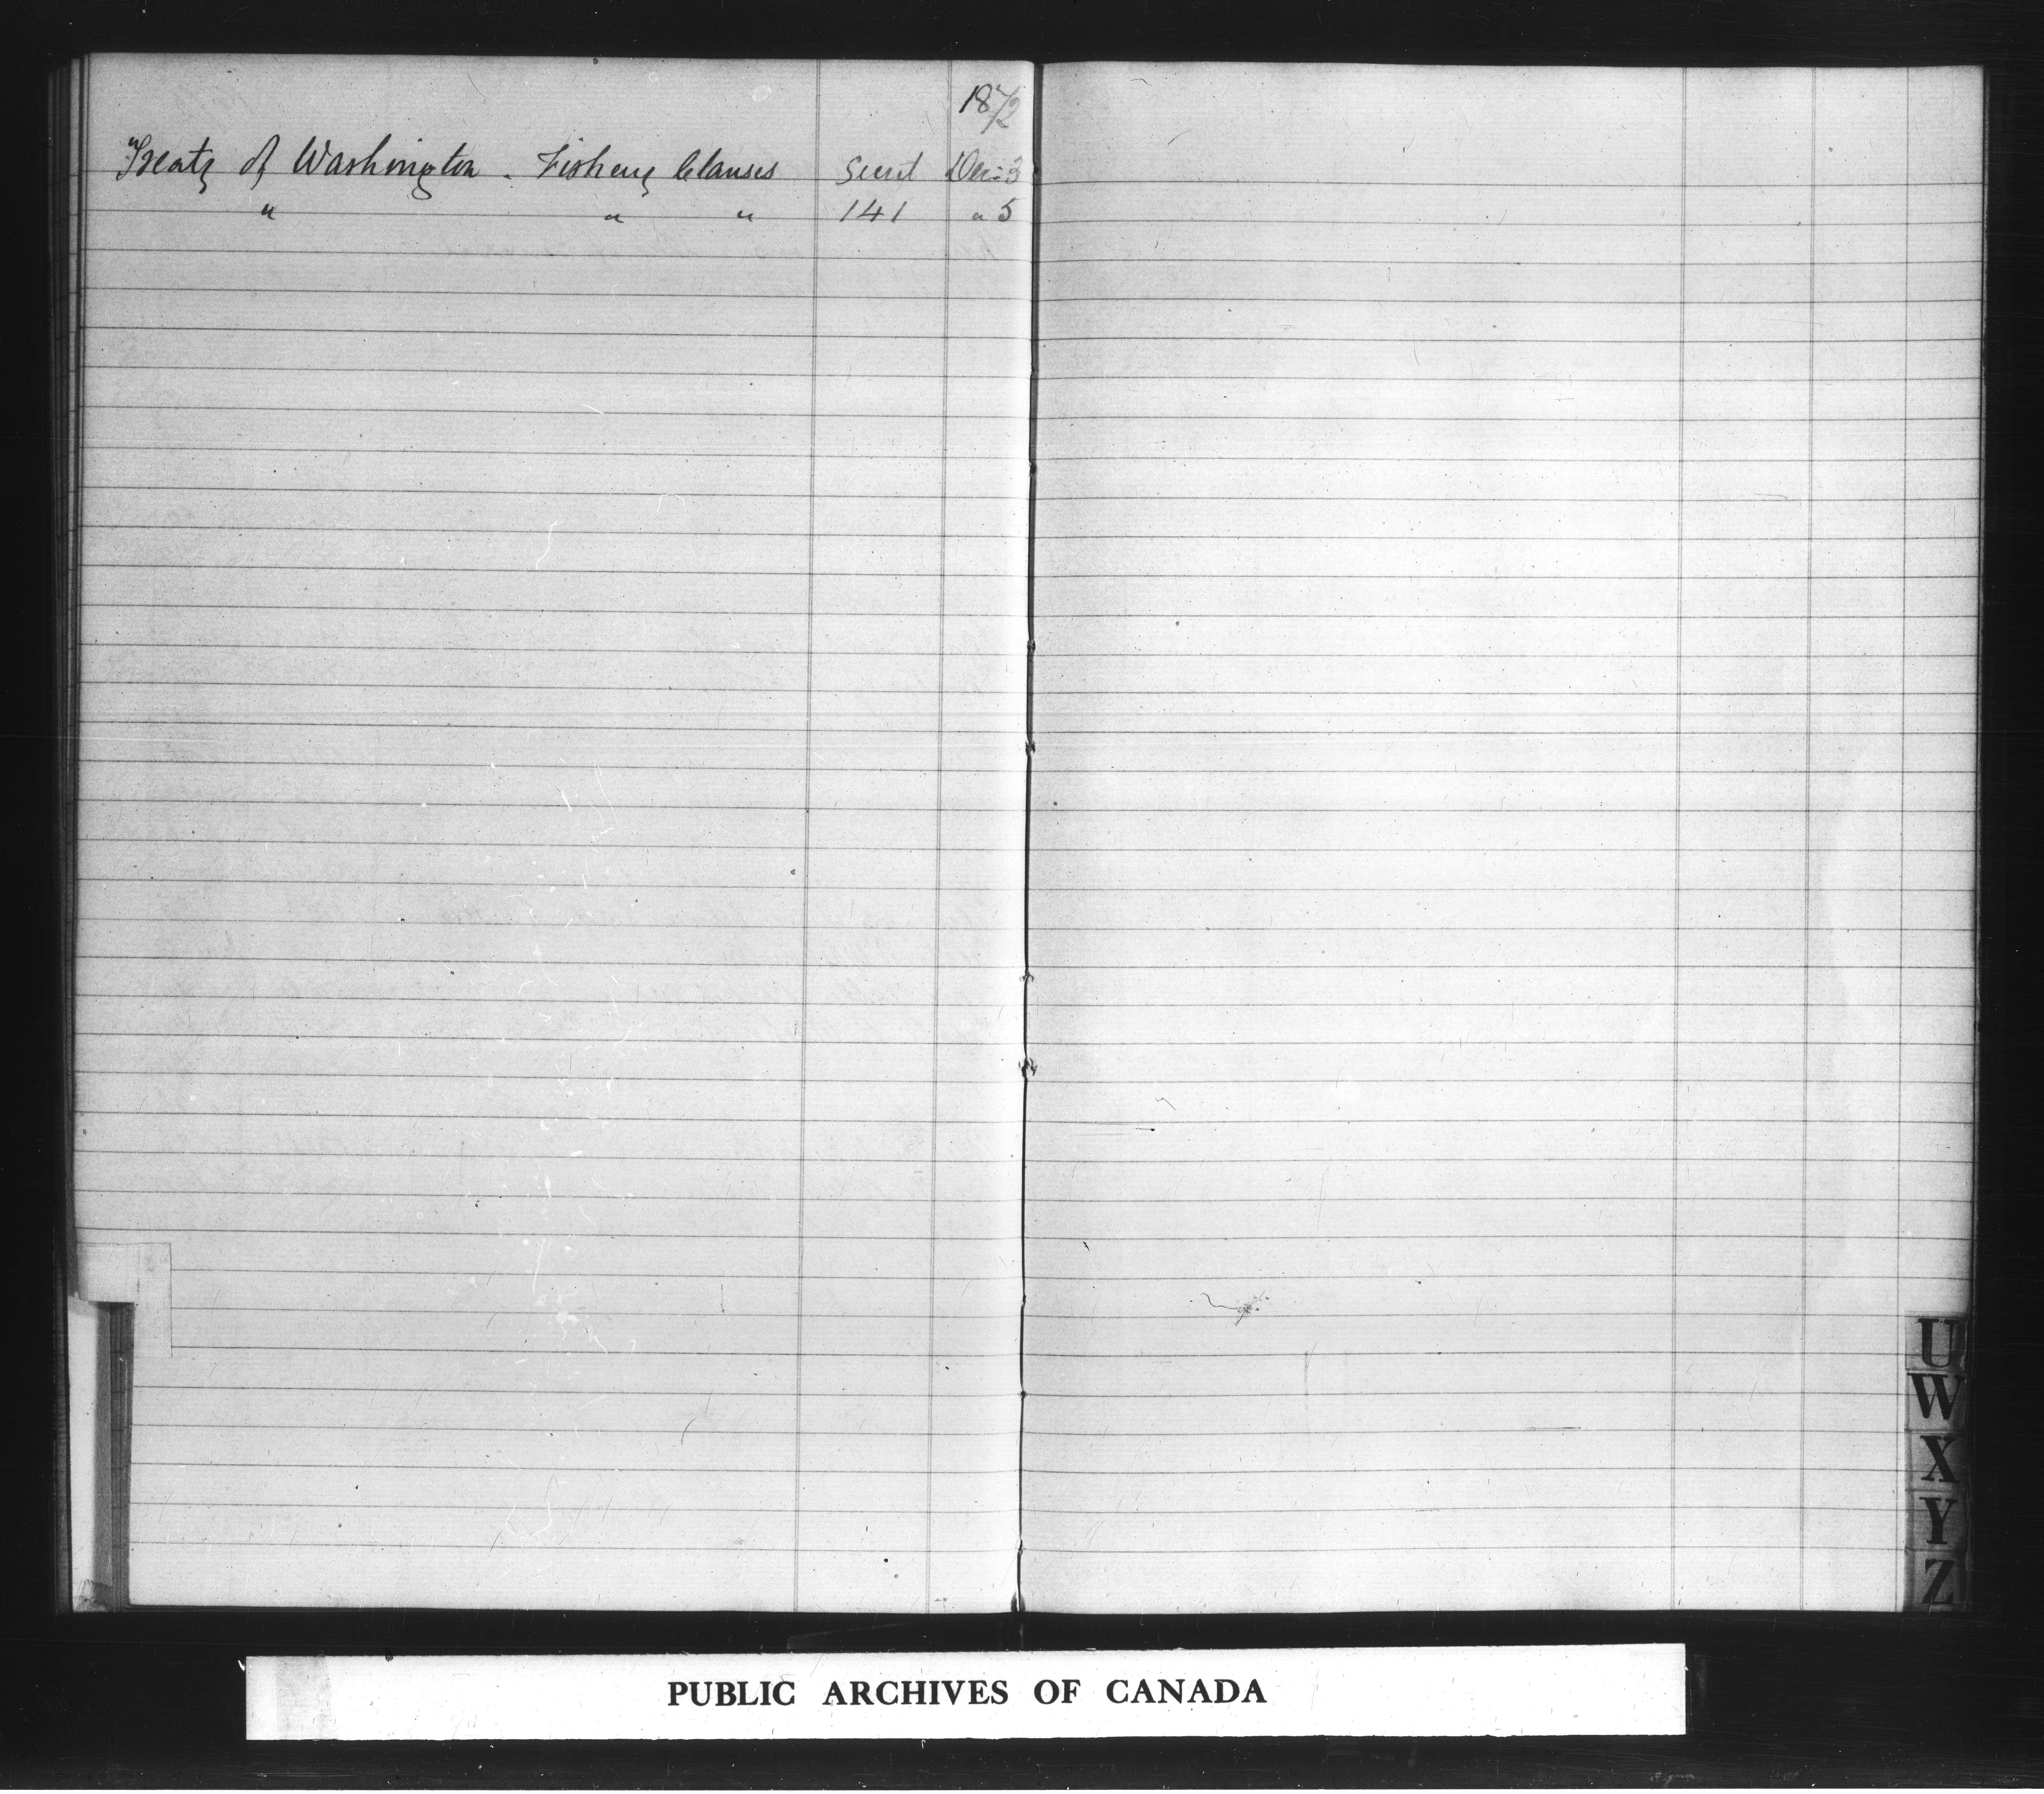 1872
Treaty of Washington - Fishery Clauses Secret Dec: 3
" " " 141 " 5
U
W
X
Y
Z
PUBLIC ARCHIVES OF CANADA